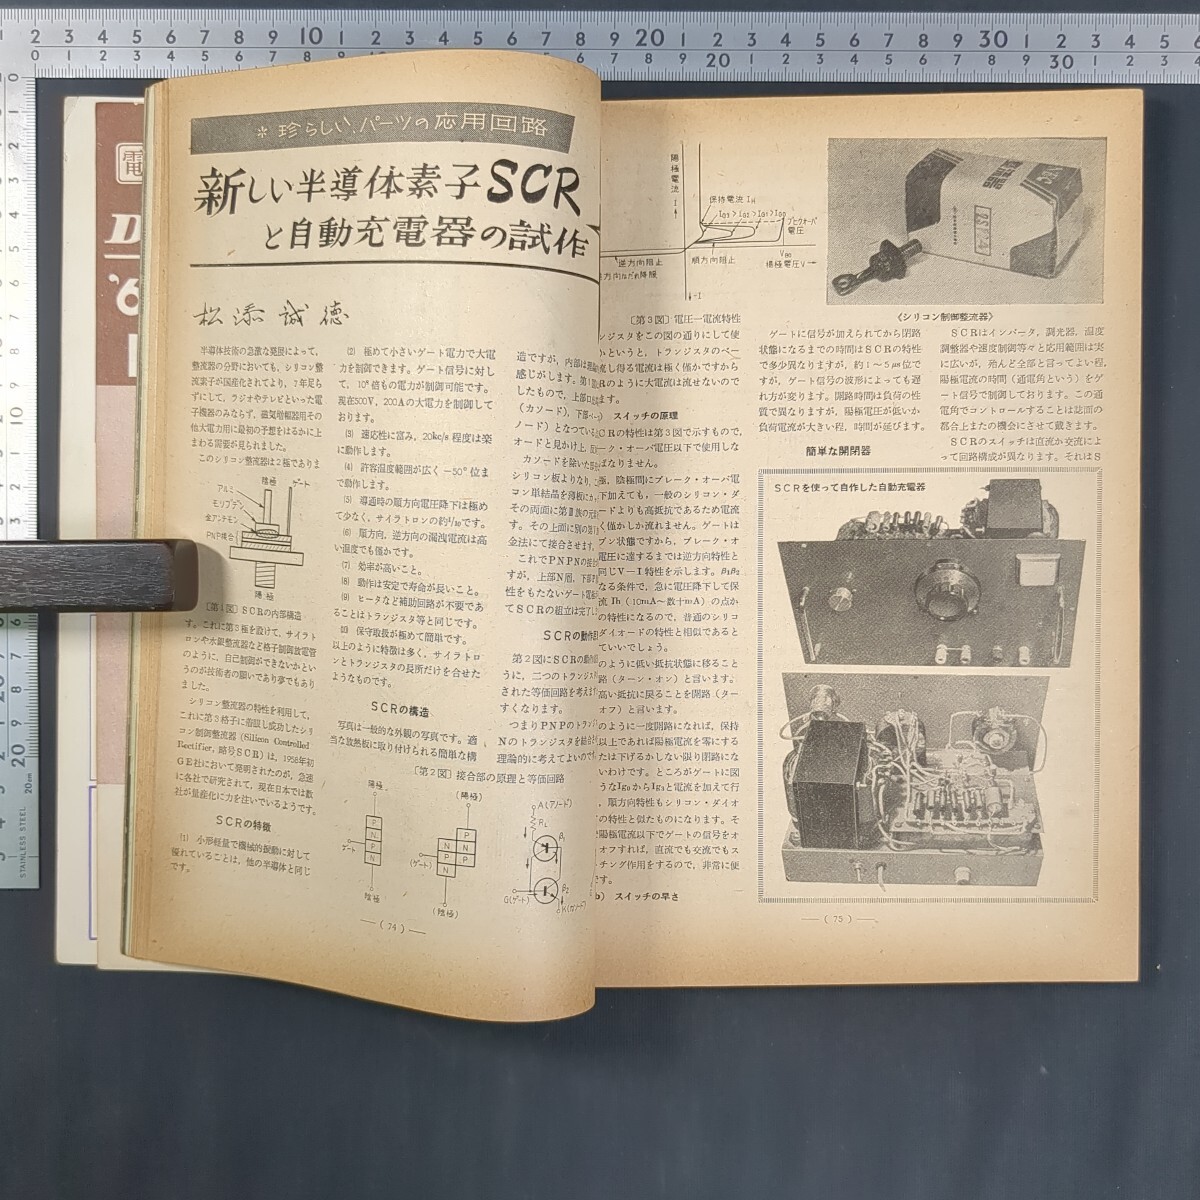 ＊珍らしいパーツの応用回路
新しい半導体素子SCR
と自動充電器の試作
松添誠徳
半導体技術の急激な発展によって，
整流器の分野においても，シリコン整
流素子が国産化されてより，7年足ら
ずにして，ラジオやテレビといった電
子機器のみならず，磁気増幅器用その
他大電力用に最初の予想をはるかに上
まわる需要が見られました。
このシリコン整流器は2極でありま
陰極
ゲート
アルミ
モリブデン
金アンチモン
PNP接合
陽極
〔第1図〕SCRの内部構造
す。これに第3極を設けて，サイラト
ロンや水銀整流器など格子制御放電管
のように，自己制御ができないかとい
うのが技術者の願いであり夢でもあり
ました。
シリコン整流器の特性を利用して，
これに第3格子に着眼し成功したシリ
コン制御整流器(Silicon Controlled
Rectifier，略号SCR)は，1958年初
GE社において発明されたのが，急速
に各社で研究されて，現在日本では数
社が量産化に力を注いでいるようです。
SCRの特徴
(1) 小形軽量で機械的振動に対して
優れていることは，他の半導体と同じ
です。
(2) 極めて小さいゲート電力で大電
力を制御できます。ゲート信号に対し
て，
倍もの電力が制御可能です。
現在500V，200Aの大電力を制御して
おります。
(3) 速応性に富み，20kc/s 程度は楽
に動作します。
(4) 許容温度範囲が広く −50° 位ま
で動作します。
(5) 導通時の順方向電圧降下は極め
て少なく，サイラトロンの約1/10です。
(6) 順方向，逆方向の漏洩電流は高
い温度でも僅かです。
(7) 効率が高いこと。
(8) 動作は安定で寿命が長いこと。
(9) ヒータなど補助回路が不要であ
ることはトランジスタ等と同じです。
保守取扱が極めて簡単です。
以上のように特徴は多く，サイラトロ
ンとトランジスタの長所だけを合せた
ようなものです。
SCRの構造
写真は一般的な外観の写真です。適
当な放熱板に取り付けられる簡単な構
造ですが，内部は
感じがします。第1
したもので，上部
(カソード)，下部
ノード)となってい
オードと見かけ上
カソードを除いた
シリコン板よりなり，
コン単結晶を薄板に
その両面に第Ⅲ族の元
す。その上面に別の第
金法にて接合させます
これでPNPNの接合
すが，上部N層，下部
性をもたないゲート電極
てSCRの組立は完了し
SCRの動作
第2図にSCRの動作
うに，二つのトランジス
された等価回路を考え
すくなります。
つまりPNPのトラン
Nのトランジスタを結合
理論的に考えてよいので
〔第2図〕接合部の原理と等価回路
陽極
P
N
P
N
ゲート
陰極
(陽極)
P
N
N
P
P
N
(ゲート)
(陰極)
A(アノード)
RL
β1
β2
G(ゲート)
K(カソード)
—(74)—
陽極電流
I
保持電流 IH
IG3＞IG2＞IG1＞IG0
ブレークオーバ
電圧
VBO
逆方向阻止
順方向阻止
陽極電圧V→
方向なだれ降服
−I
〔第3図〕電圧—電流特性
ンジスタをこの図の通りにして使
かというと，トランジスタのベー
流し得る電流は極く僅かですから
Rのように大電流は流せないので
ます。
スイッチの原理
CRの特性は第3図で示すもので，
ーク・オーバ電圧以下で使用しな
ばなりません。
極，陰極間にブレーク・オーバ電
下加えても，一般のシリコン・ダ
ードよりも高抵抗であるため電流
く僅かしか流れません。ゲートは
プン状態ですから，ブレーク・オ
電圧に達するまでは逆方向特性と
同じV—I特性を示します。β1β2
なる条件で，急に電圧降下して保
流 Ih (10mA〜数十mA) の点か
の特性になるので，普通のシリコ
ダイオードの特性と相似であると
ていいでしょう。
のように低い抵抗状態に移ること
路(ターン・オン)と言います。
高い抵抗に戻ることを開路(ター
オフ)と言います。
のように一度閉路になれば，保持
以上であれば陽極電流を零にする
たは下げるかしない限り閉路にな
いわけです。ところがゲートに図
うなIG0からIG3と電流を加えて行
，順方向特性もシリコン・ダイオ
の特性と似たものになります。そ
陽極電流以下でゲートの信号をオ
オフすれば，直流でも交流でもス
チング作用をするので，非常に便
です。
b) スイッチの早さ
《シリコン制御整流器》
ゲートに信号が加えられてから閉路
状態になるまでの時間はSCRの特性
で多少異なりますが，約1〜5μs位で
すが，ゲート信号の波形によっても遅
れ方が変ります。開路時間は負荷の性
質で異なりますが，陽極電圧が低いか
負荷電流が大きい程，時間が延びます。
簡単な開閉器
SCRはインバータ，調光器，温度
調整器や速度制御等々と応用範囲は実
に広いが，殆んど全部と言ってよい程，
陽極電流の時間(通電角という)をゲ
ート信号で制御しております。この通
電角でコントロールすることは誌面の
都合上またの機会にさせて戴きます。
SCRのスイッチは直流か交流によ
って回路構成が異なります。それはS
SCRを使って自作した自動充電器
—(75)—
STAINLESS STEEL